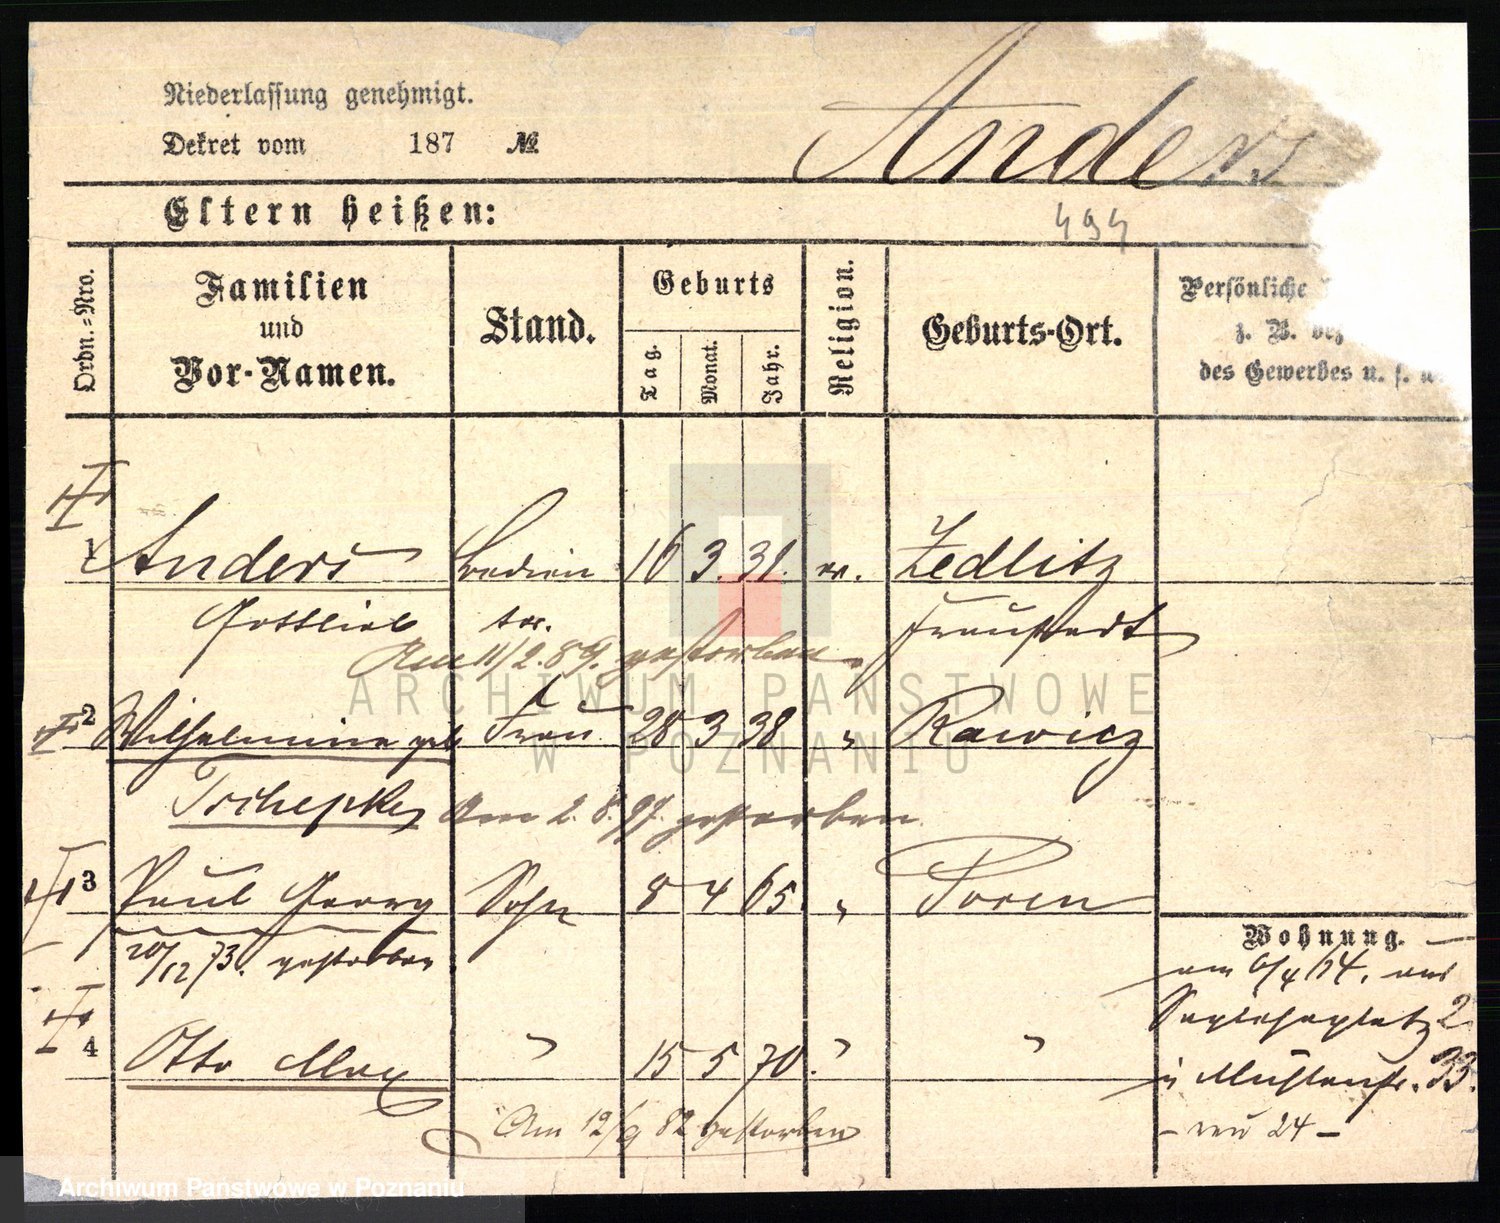 Niederlassung genehmigt.
Dekret vom 187 №
Anders
Eltern heißen:
494
Ordn.-Nro.
Familien
und
Vor-Namen.
Stand.
Geburts
Tag.
Monat.
Jahr.
Religion.
Geburts-Ort.
Persönliche
z. B.
des Gewerbes u. s. w.
1 Anders 16 3. 31. ev. Zedlitz
Gottlieb Fraustadt
Am 11/2. 89. gestorben.
2 Wilhelmine geb Frau 28 3 38 " Rawicz
Tschepke Am 2. 8. 97. gestorben
3 Paul Georg Sohn 8 4 65. " Posen
20/12 73. gestorben.
Wohnung.
am 6/4 74. aus
Sapiehaplatz 2.
4 Otto Max " 15 5 70. " "
n Mühlenstr. 33.
Am 12/9 82 gestorben
- neu 24 -
ARCHIWUM PAŃSTWOWE
W POZNANIU
Archiwum Państwowe w Poznaniu